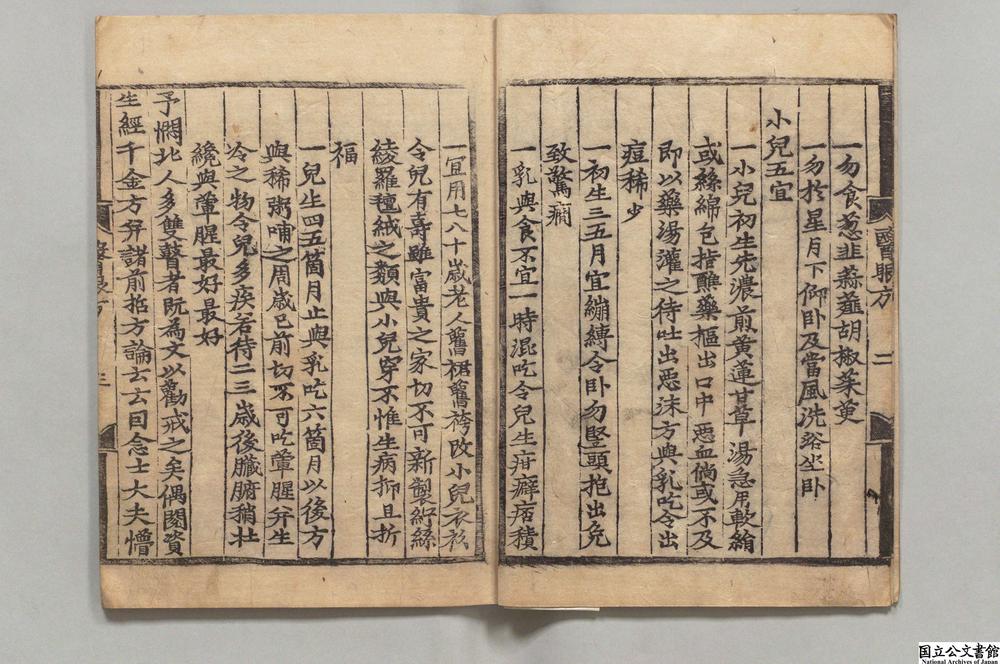 一勿食葱韭蒜薤胡椒茱萸
一勿於星月下仰卧及當風洗浴坐卧
小兒五宜
一小兒初生先濃煎黄蓮甘草湯急用軟絹
或絲綿包指蘸藥摳出口中惡血倘或不及
即以藥湯灌之待吐出惡沫方與乳吃令出
痘稀少
一初生三五月宜繃縛令卧勿竪頭抱出免
致驚癇
一乳與食不宜一時混吃令兒生疳癖痞積
一宜用七八十歳老人舊裙舊袴改小兒衣衫
令兒有壽雖富貴之家切不可新製紵絲
綾羅氊絨之類與小兒穿不惟生病抑且折
福
一兒生四五箇月止與乳吃六箇月以後方
與稀粥哺之周歳已前切不可吃葷腥并生
冷之物令兒多疾若待二三歳後臟腑稍壮
纔與葷腥最好最好
予憫北人多雙瞽者既為文以勸戒之矣偶閱資
生經千金方并諸前哲方論去云因念士大夫懵
醫眼方
二
國立公文書館
National Archives of Japan